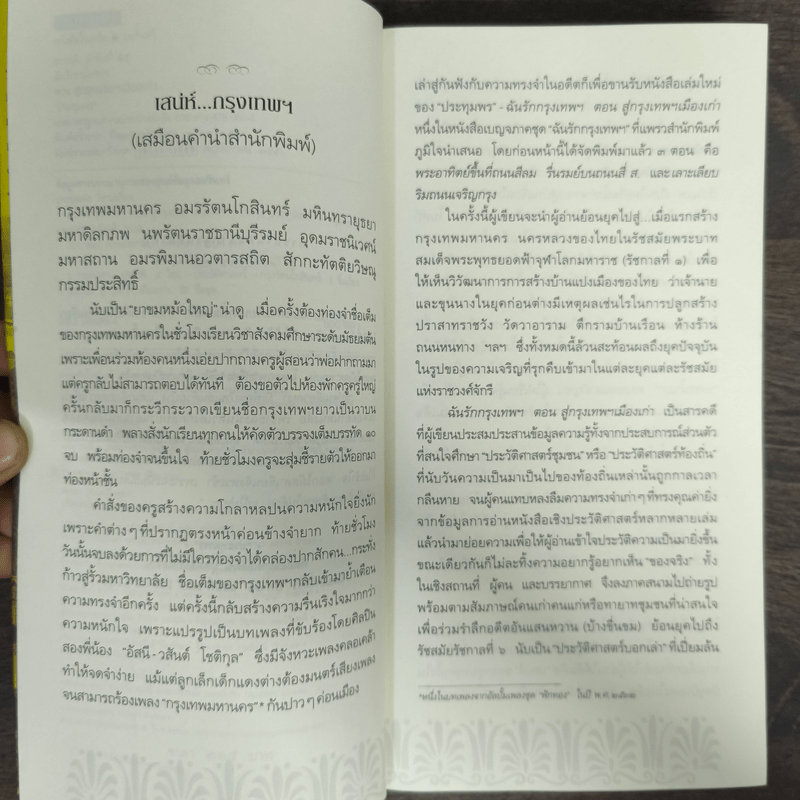 เสน่ห์...กรุงเทพฯ
(เสมือนคำนำสำนักพิมพ์)
กรุงเทพมหานคร อมรรัตนโกสินทร์ มหินทรายุธยา
มหาดิลกภพ นพรัตนราชธานีบุรีรมย์ อุดมราชนิเวศน์
มหาสถาน อมรพิมานอวตารสถิต สักกะทัตติยวิษณุ
กรรมประสิทธิ์
นับเป็น "ยาขมหม้อใหญ่" น่าดู เมื่อครั้งต้องท่องจำชื่อเต็ม
ของกรุงเทพมหานครในชั่วโมงเรียนวิชาสังคมศึกษาระดับมัธยมต้น
เพราะเพื่อนร่วมห้องคนหนึ่งเอ่ยปากถามครูผู้สอนว่าพ่อฝากถามมา
แต่ครูกลับไม่สามารถตอบได้ทันที ต้องขอตัวไปห้องพักครูครู่ใหญ่
ครั้นกลับมาก็กระวีกระวาดเขียนชื่อกรุงเทพฯยาวเป็นวาบน
กระดานดำ พลางสั่งนักเรียนทุกคนให้คัดตัวบรรจงเต็มบรรทัด ๑๐
จบ พร้อมท่องจำจนขึ้นใจ ท้ายชั่วโมงครูจะสุ่มชี้รายตัวให้ออกมา
ท่องหน้าชั้น
คำสั่งของครูสร้างความโกลาหลปนความหนักใจยิ่งนัก
เพราะคำต่าง ๆ ที่ปรากฏตรงหน้าค่อนข้างจำยาก ท้ายชั่วโมง
วันนั้นจบลงด้วยการที่ไม่มีใครท่องจำได้คล่องปากสักคน...กระทั่ง
ก้าวสู่รั้วมหาวิทยาลัย ชื่อเต็มของกรุงเทพฯกลับเข้ามาย้ำเตือน
ความทรงจำอีกครั้ง แต่ครั้งนี้กลับสร้างความรื่นเริงใจมากกว่า
ความหนักใจ เพราะแปรรูปเป็นบทเพลงที่ขับร้องโดยศิลปิน
สองพี่น้อง "อัสนี - วสันต์ โชติกุล" ซึ่งมีจังหวะเพลงคลอเคล้า
ทำให้จดจำง่าย แม้แต่ลูกเล็กเด็กแดงต่างต้องมนตร์เสียงเพลง
จนสามารถร้องเพลง "กรุงเทพมหานคร" * กันปาว ๆ ค่อนเมือง
เล่าสู่กันฟังกับความทรงจำในอดีตก็เพื่อขานรับหนังสือเล่มใหม่
ของ "ประทุมพร" - ฉันรักกรุงเทพฯ ตอน สู่กรุงเทพฯเมืองเก่า
หนึ่งในหนังสือเบญจภาคชุด "ฉันรักกรุงเทพฯ" ที่แพรวสำนักพิมพ์
ภูมิใจนำเสนอ โดยก่อนหน้านี้ได้จัดพิมพ์มาแล้ว ๓ ตอน คือ
พระอาทิตย์ขึ้นที่ถนนสีลม รื่นรมย์บนถนนสี่ ส. และ เลาะเลียบ
ริมถนนเจริญกรุง
ในครั้งนี้ผู้เขียนจะนำผู้อ่านย้อนยุคไปสู่...เมื่อแรกสร้าง
กรุงเทพมหานคร นครหลวงของไทยในรัชสมัยพระบาท
สมเด็จพระพุทธยอดฟ้าจุฬาโลกมหาราช (รัชกาลที่ ๑) เพื่อ
ให้เห็นวิวัฒนาการการสร้างบ้านแปงเมืองของไทย ว่าเจ้านาย
และขุนนางในยุคก่อนต่างมีเหตุผลเช่นไรในการปลูกสร้าง
ปราสาทราชวัง วัดวาอาราม ตึกรามบ้านเรือน ห้างร้าน
ถนนหนทาง ฯลฯ ซึ่งทั้งหมดนี้ล้วนสะท้อนผลถึงยุคปัจจุบัน
ในรูปของความเจริญที่รุกคืบเข้ามาในแต่ละยุคแต่ละรัชสมัย
แห่งราชวงศ์จักรี
ฉันรักกรุงเทพฯ ตอน สู่กรุงเทพฯเมืองเก่า เป็นสารคดี
ที่ผู้เขียนประสมประสานข้อมูลความรู้ทั้งจากประสบการณ์ส่วนตัว
ที่สนใจศึกษา "ประวัติศาสตร์ชุมชน" หรือ "ประวัติศาสตร์ท้องถิ่น"
ที่นับวันความเป็นมาเป็นไปของท้องถิ่นเหล่านั้นถูกกาลเวลา
กลืนหาย จนผู้คนแทบหลงลืมความทรงจำเก่า ๆ ที่ทรงคุณค่ายิ่ง
จากข้อมูลการอ่านหนังสือเชิงประวัติศาสตร์หลากหลายเล่ม
แล้วนำมาย่อยความเพื่อให้ผู้อ่านเข้าใจประวัติความเป็นมายิ่งขึ้น
ขณะเดียวกันก็ไม่ละทิ้งความอยากรู้อยากเห็น "ของจริง" ทั้ง
ในเชิงสถานที่ ผู้คน และบรรยากาศ จึงลงภาคสนามไปถ่ายรูป
พร้อมตามสัมภาษณ์คนเก่าคนแก่หรือทายาทชุมชนที่น่าสนใจ
เพื่อร่วมรำลึกอดีตอันแสนหวาน (บ้างขื่นขม) ย้อนยุคไปถึง
รัชสมัยรัชกาลที่ ๖ นับเป็น "ประวัติศาสตร์บอกเล่า" ที่เปี่ยมล้น
*หนึ่งในบทเพลงจากอัลบั้มเพลงชุด "ฟักทอง" ในปี พ.ศ. ๒๕๓๒